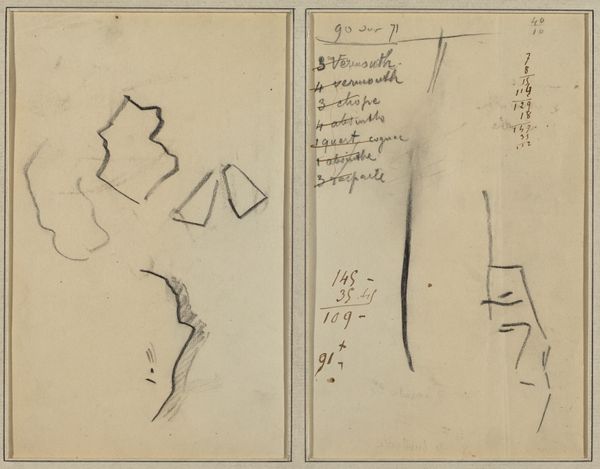 90 sur 71
40
10
3 Vermouth
4 vermouth
3 chope
4 absinthe
1 quart cognac
1 absinthe
3
7
8
15
114
129
18
147
145 -
35.45
109 -
91 +